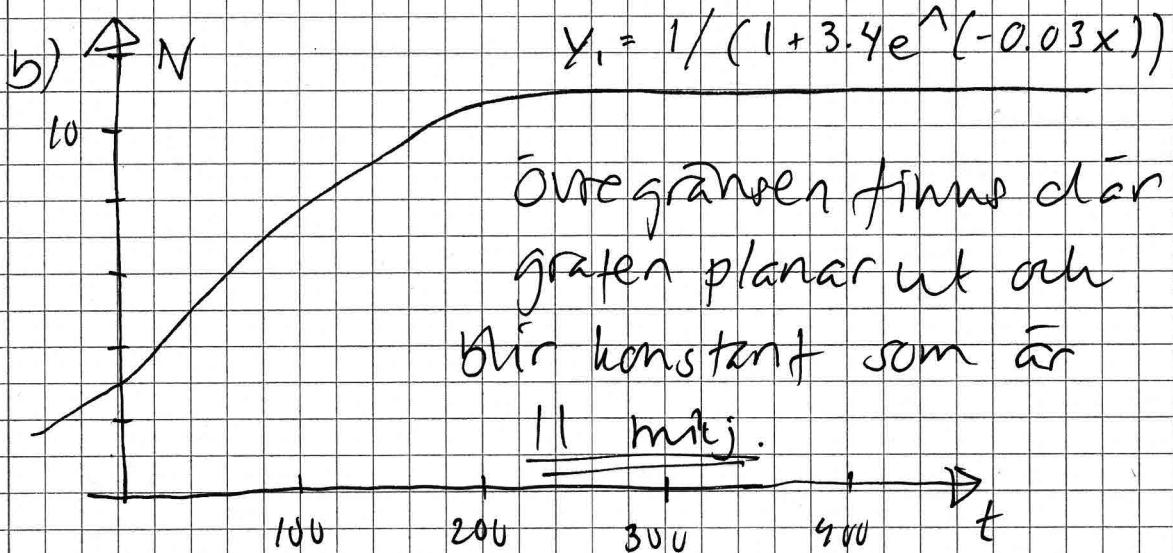 b) N y₁ = 1/(1+3.4e^(-0.03x))
10
övregränsen finns där
grafen planar ut och
blir konstant som är
11 milj.
100 200 300 400 t